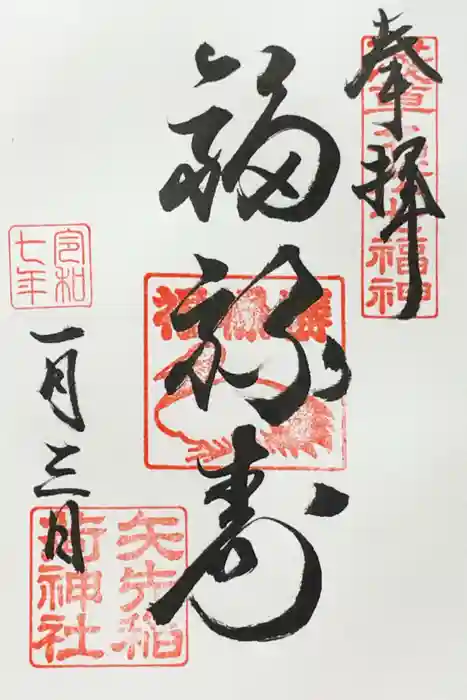 奉拝
浅草名所七福神
福禄寿
令和
七年
一月三日
矢先稲
荷神社